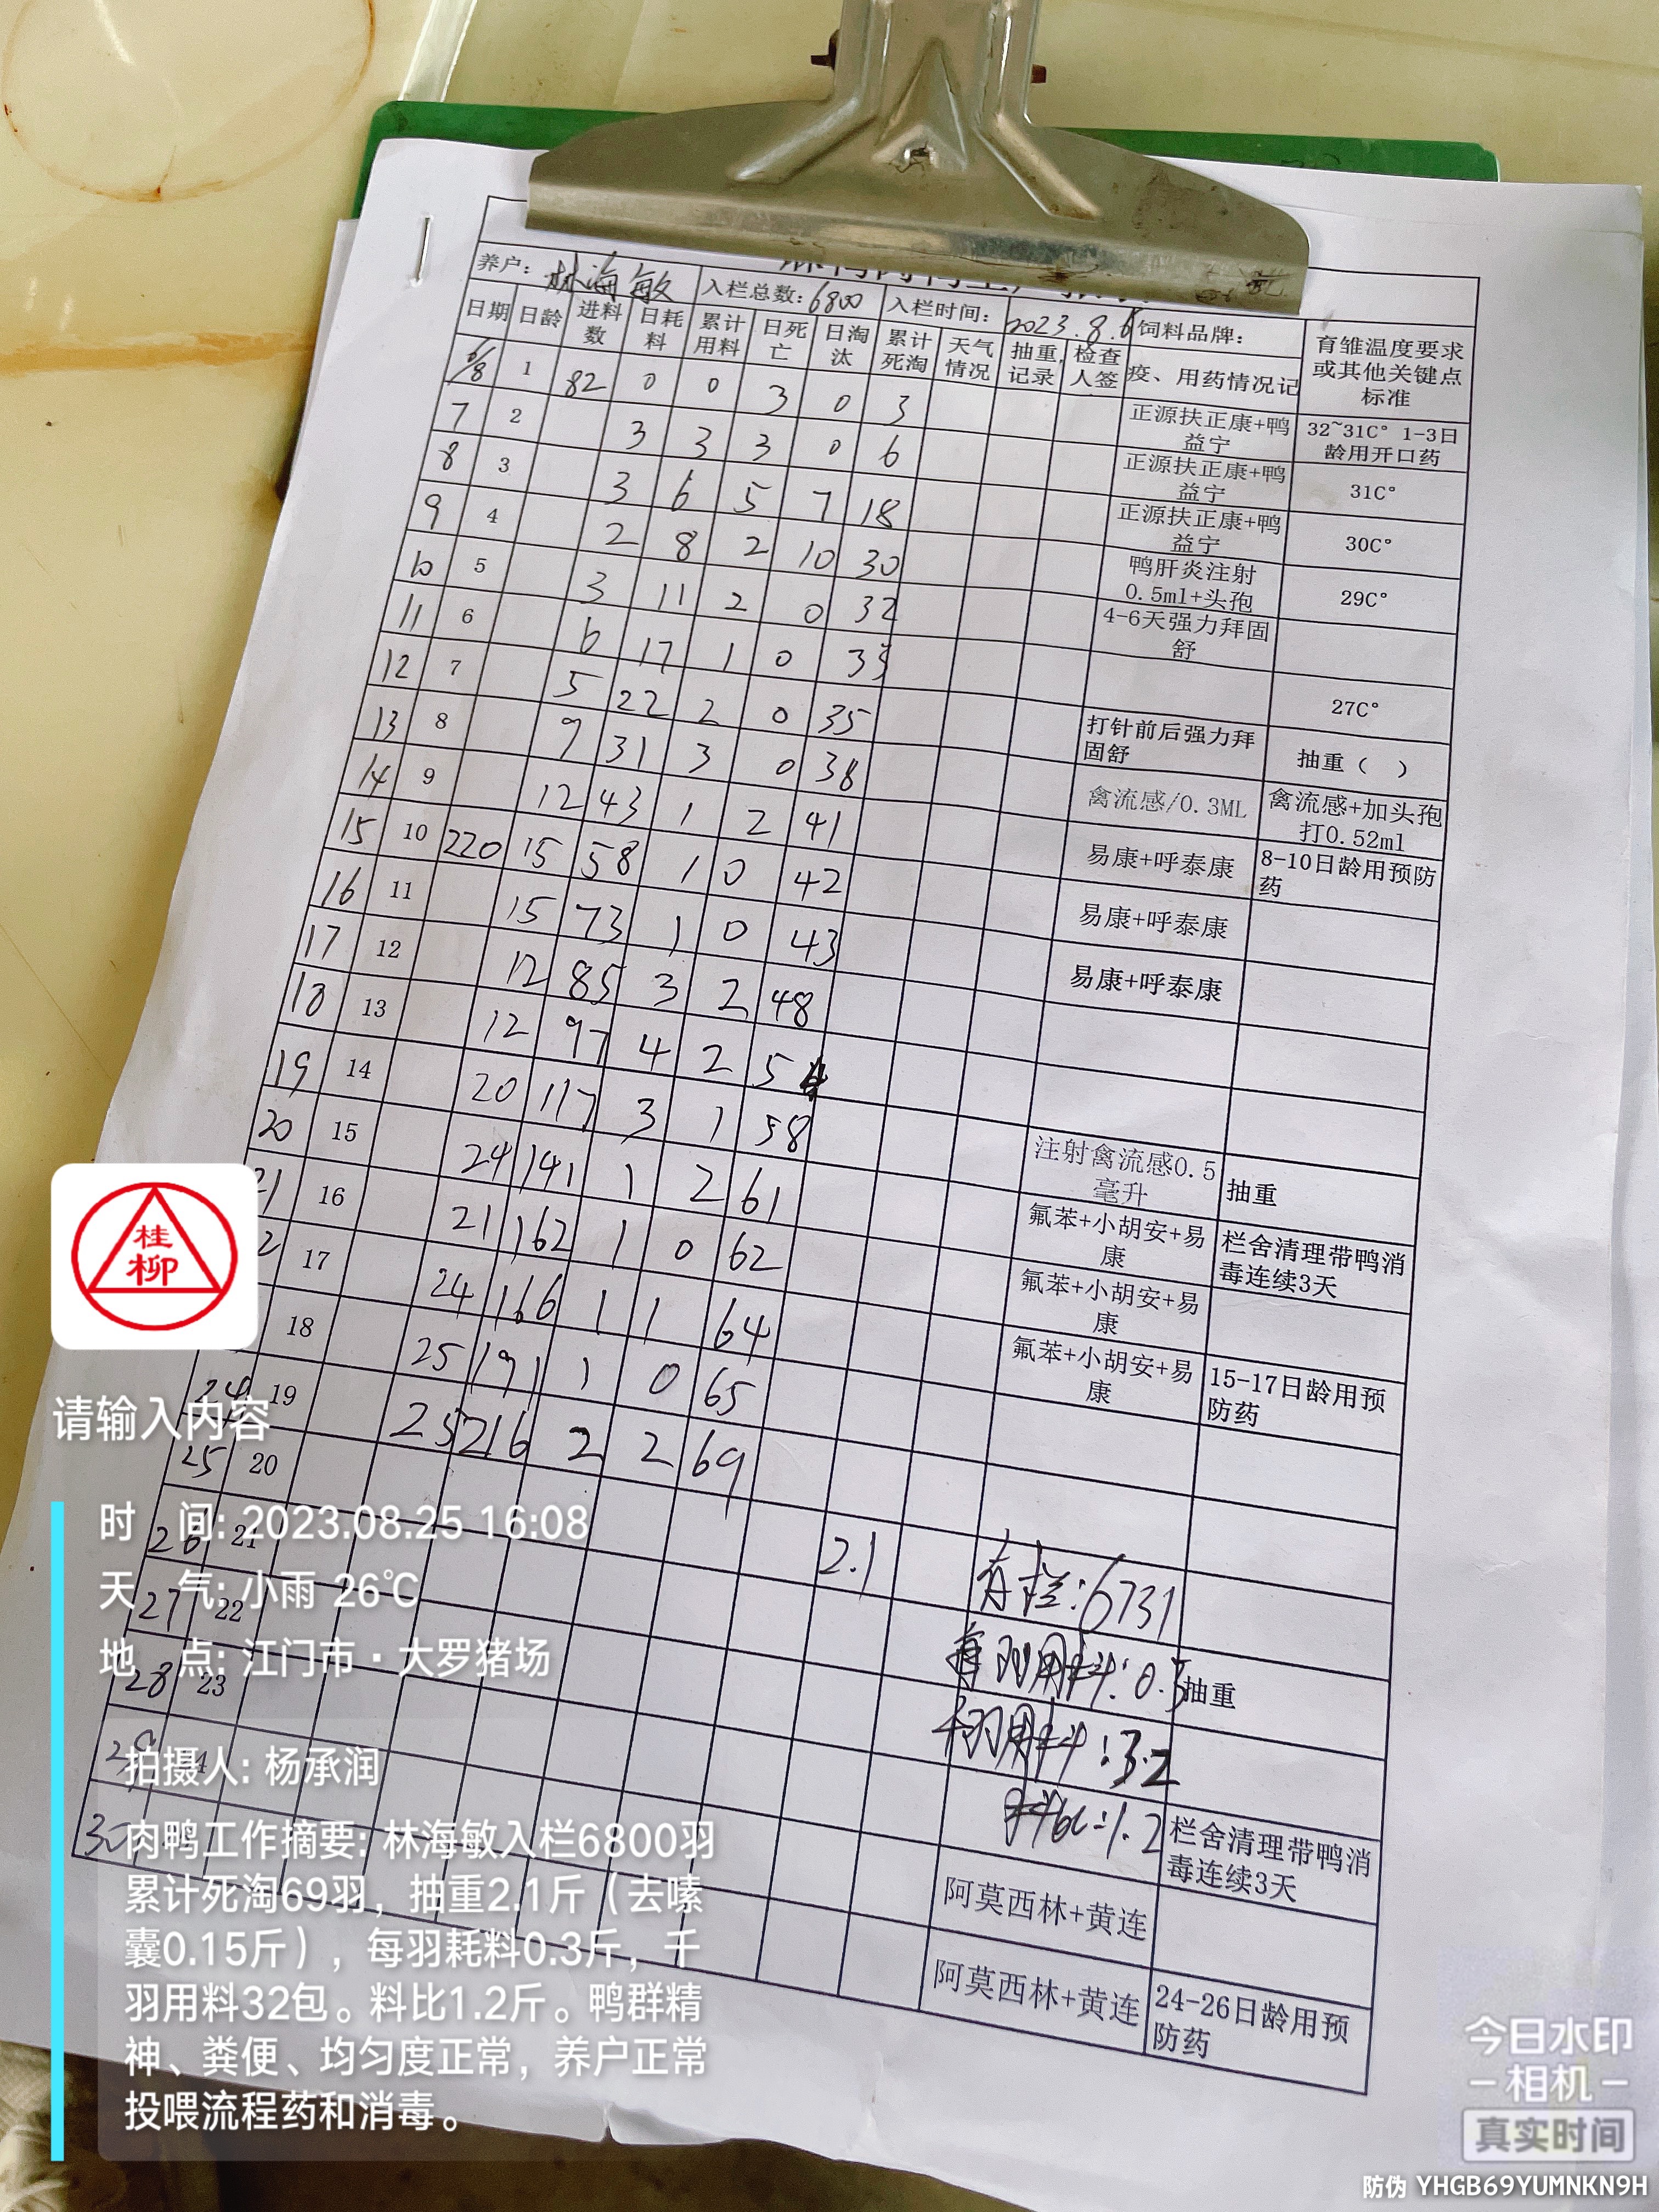 养户：林海敏 入栏总数：6800 入栏时间：2023.8.6 饲料品牌：
日期 日龄 进料数 日耗料 累计用料 日死亡 日淘汰 累计死淘 天气情况 抽重记录 检查人签 疫、用药情况记 育雏温度要求或其他关键点标准
6/8 1 82 0 0 3 0 3 正源扶正康+鸭益宁 32~31C° 1-3日龄用开口药
7 2 3 3 3 0 6 正源扶正康+鸭益宁 31C°
8 3 3 6 5 7 18 正源扶正康+鸭益宁 30C°
9 4 2 8 2 10 30 鸭肝炎注射0.5ml+头孢 29C°
10 5 3 11 2 0 32 4-6天强力拜固舒
11 6 6 17 1 0 33 27C°
12 7 5 22 2 0 35 打针前后强力拜固舒 抽重（ ）
13 8 9 31 3 0 38 禽流感/0.3ML 禽流感+加头孢打0.52ml
14 9 12 43 1 2 41 易康+呼泰康 8-10日龄用预防药
15 10 220 15 58 1 0 42 易康+呼泰康
16 11 15 73 1 0 43 易康+呼泰康
17 12 12 85 3 2 48
18 13 12 97 4 2 54
19 14 20 117 3 1 58 注射禽流感0.5毫升 抽重
20 15 24 141 1 2 61 氟苯+小胡安+易康 栏舍清理带鸭消毒连续3天
21 16 21 162 1 0 62 氟苯+小胡安+易康
2 17 24 166 1 1 64 氟苯+小胡安+易康 15-17日龄用预防药
18 25 191 1 0 65
24 19 25 216 2 2 69
25 20 2.1 存栏：6731
26 21 每羽用料：0.3 抽重
27 22 千羽用料：32
28 23 料比：1.2 栏舍清理带鸭消毒连续3天
29 24 阿莫西林+黄连
30 阿莫西林+黄连 24-26日龄用预防药
桂柳
请输入内容
时 间：2023.08.25 16:08
天 气：小雨 26℃
地 点：江门市·大罗猪场
拍摄人：杨承润
肉鸭工作摘要：林海敏入栏6800羽
累计死淘69羽，抽重2.1斤（去嗉
囊0.15斤），每羽耗料0.3斤，千
羽用料32包。料比1.2斤。鸭群精
神、粪便、均匀度正常，养户正常
投喂流程药和消毒。
今日水印
相机
真实时间
防伪 YHGB69YUMNKN9H